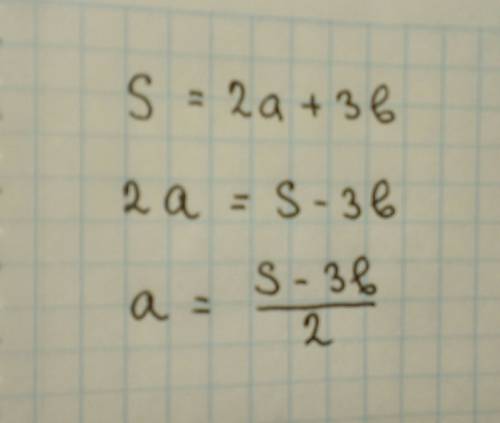 S = 2a + 3b
2a = S - 3b
a = \frac{S - 3b}{2}